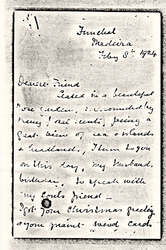 Funchal
Madeira
Feby 8th 1924
Dearest Friend
Seated in a beautiful
garden surrounded by
many, seeing a
great view of sea & islands
& headlands, I turn to you
on this day, my Husband's
birthday, to speak with
my soul's friend —
I got your Christmas greeting
& your